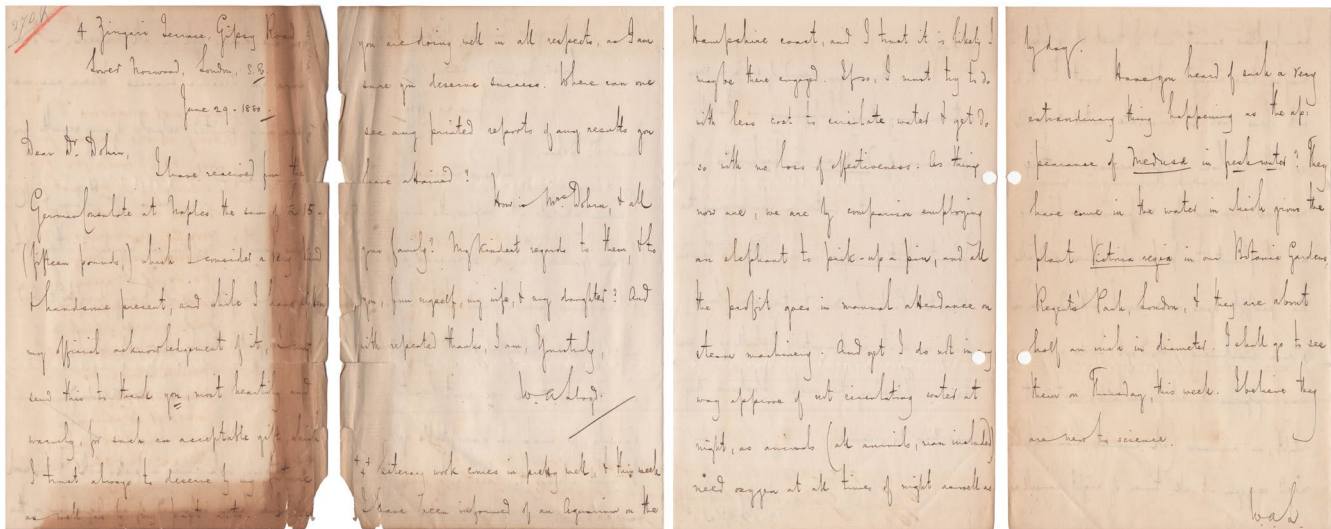 4 Zingari Terrace, Gipsy Road,
Lower Norwood, London, S.E.
June 29 - 1880.
Dear Dr. Dohrn,
I have received from the
German Consulate at Naples, the sum of £15 -
(fifteen pounds,) which I consider a very kind
& handsome present, and while I have
my official acknowledgement of it,
send this to thank you, most heartily and
warmly, for such an acceptable gift, which
I trust always to deserve by my
as well as by my past
you are doing well in all respects, as I am
sure you deserve success. Where can one
see any printed reports of any results you
have attained?
How is Mrs. Dohrn, & all
your family? My kindest regards to them, & to
you, from myself, my wife, & my daughter? And
with repeated thanks, I am, Yours truly,
W. A. Lloyd.
Literary work comes in pretty well, & this week
I have been informed of an Aquarium on the
Hampshire coast, and I trust it is likely I
may be there engaged. If so, I must try to do
with less cost to circulate water & yet do
so with no loss of effectiveness. As things
now are, we are by comparison employing
an elephant to pick-up a pin, and all
the profit goes in manual attendance on
steam machinery. And yet I do not in any
way approve of not circulating water at
night, as animals (all animals, man included)
need oxygen at all times of night as well as
by day.
Have you heard of such a very
extraordinary thing happening as the ap:
:pearance of Medusa in fresh water? They
have come in the water in which grows the
plant Victoria regia in our Botanic Gardens,
Regent's Park, London, & they are about
half an inch in diameter. I shall go to see
them on Thursday, this week. I believe they
are new to science.
W.A.L.